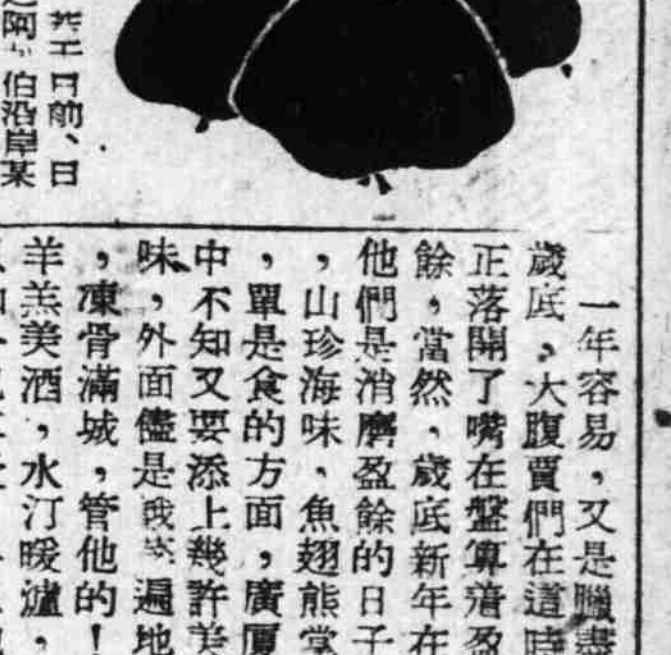 日前、日
阿 伯沿岸某
一年容易，又是臘盡
歲底，大腹賈們在這時
正落開了嘴在盤算着盈
餘，當然，歲底新年在
他們是消磨盈餘的日子
，山珍海味，魚翅熊掌
，單是食的方面，廣廈
中不知又要添上幾許美
味，外面儘是 遍地
，凍骨滿城，管他的！
羊羔美酒，水汀暖爐，